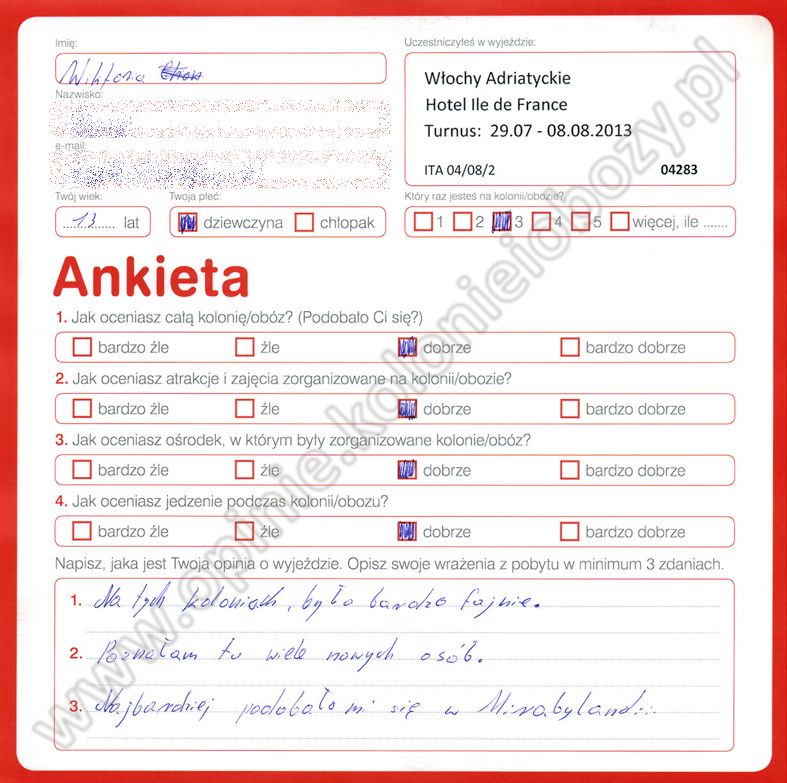 Imię:
Uczestniczyłeś w wyjeździe:
Wiktoria
Włochy Adriatyckie
Hotel Ile de France
Turnus: 29.07 - 08.08.2013
ITA 04/08/2 04283
Nazwisko:
e-mail:
Twój wiek:
Twoja płeć:
Który raz jesteś na kolonii/obozie?
...13...... lat
dziewczyna chłopak
1 2 3 4 5 więcej, ile .......
Ankieta
1. Jak oceniasz całą kolonię/obóz? (Podobało Ci się?)
bardzo źle źle dobrze bardzo dobrze
2. Jak oceniasz atrakcje i zajęcia zorganizowane na kolonii/obozie?
bardzo źle źle dobrze bardzo dobrze
3. Jak oceniasz ośrodek, w którym były zorganizowane kolonie/obóz?
bardzo źle źle dobrze bardzo dobrze
4. Jak oceniasz jedzenie podczas kolonii/obozu?
bardzo źle źle dobrze bardzo dobrze
Napisz, jaka jest Twoja opinia o wyjeździe. Opisz swoje wrażenia z pobytu w minimum 3 zdaniach.
1. Na tych koloniach, było bardzo fajnie.
2. Poznałam tu wiele nowych osób.
3. Najbardziej podobało mi się w Mirabylandii.
www.opinie.kolonieiobozy.pl